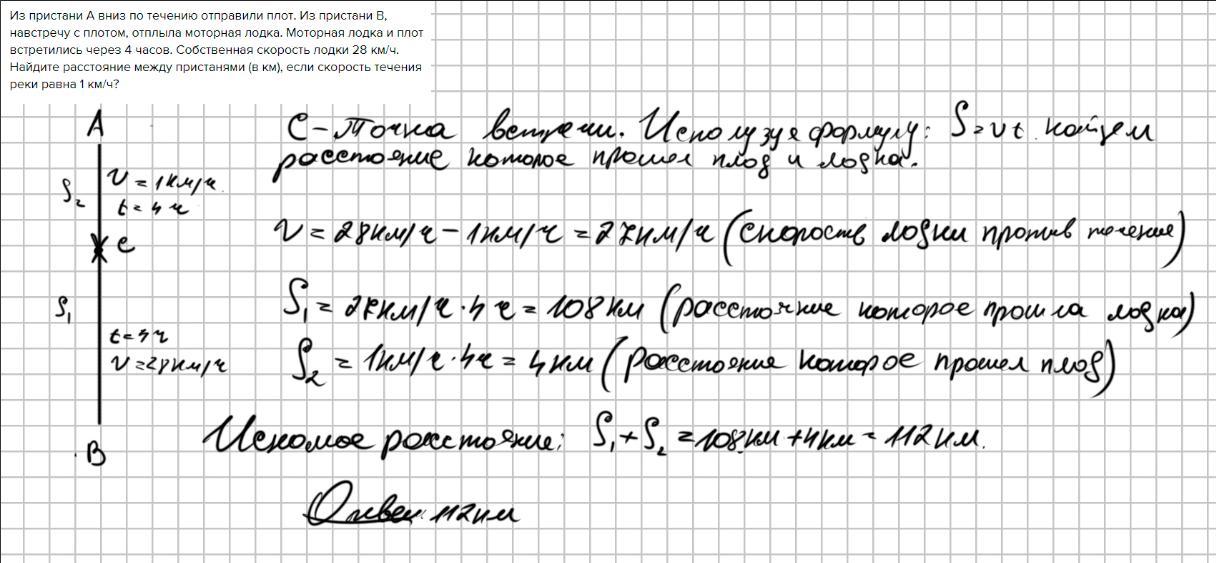 Из пристани А вниз по течению отправили плот. Из пристани В,
навстречу с плотом, отплыла моторная лодка. Моторная лодка и плот
встретились через 4 часов. Собственная скорость лодки 28 км/ч.
Найдите расстояние между пристанями (в км), если скорость течения
реки равна 1 км/ч?
A
C - Точка встречи. Используя формулу: S=vt найдем
расстояние которое прошел плод и лодка.
S₂ v = 1км/ч
t = 4 ч
C
v = 28км/ч - 1км/ч = 27км/ч (скорость лодки против течение)
S₁
S₁ = 27км/ч · 4 ч = 108 км (расстояние которое прошла лодка)
t=4ч
v=28км/ч
S₂ = 1км/ч · 4ч = 4км (расстояние которое прошел плод)
Искомое расстояние: S₁ + S₂ = 108км + 4км = 112 км.
B
Ответ 112км